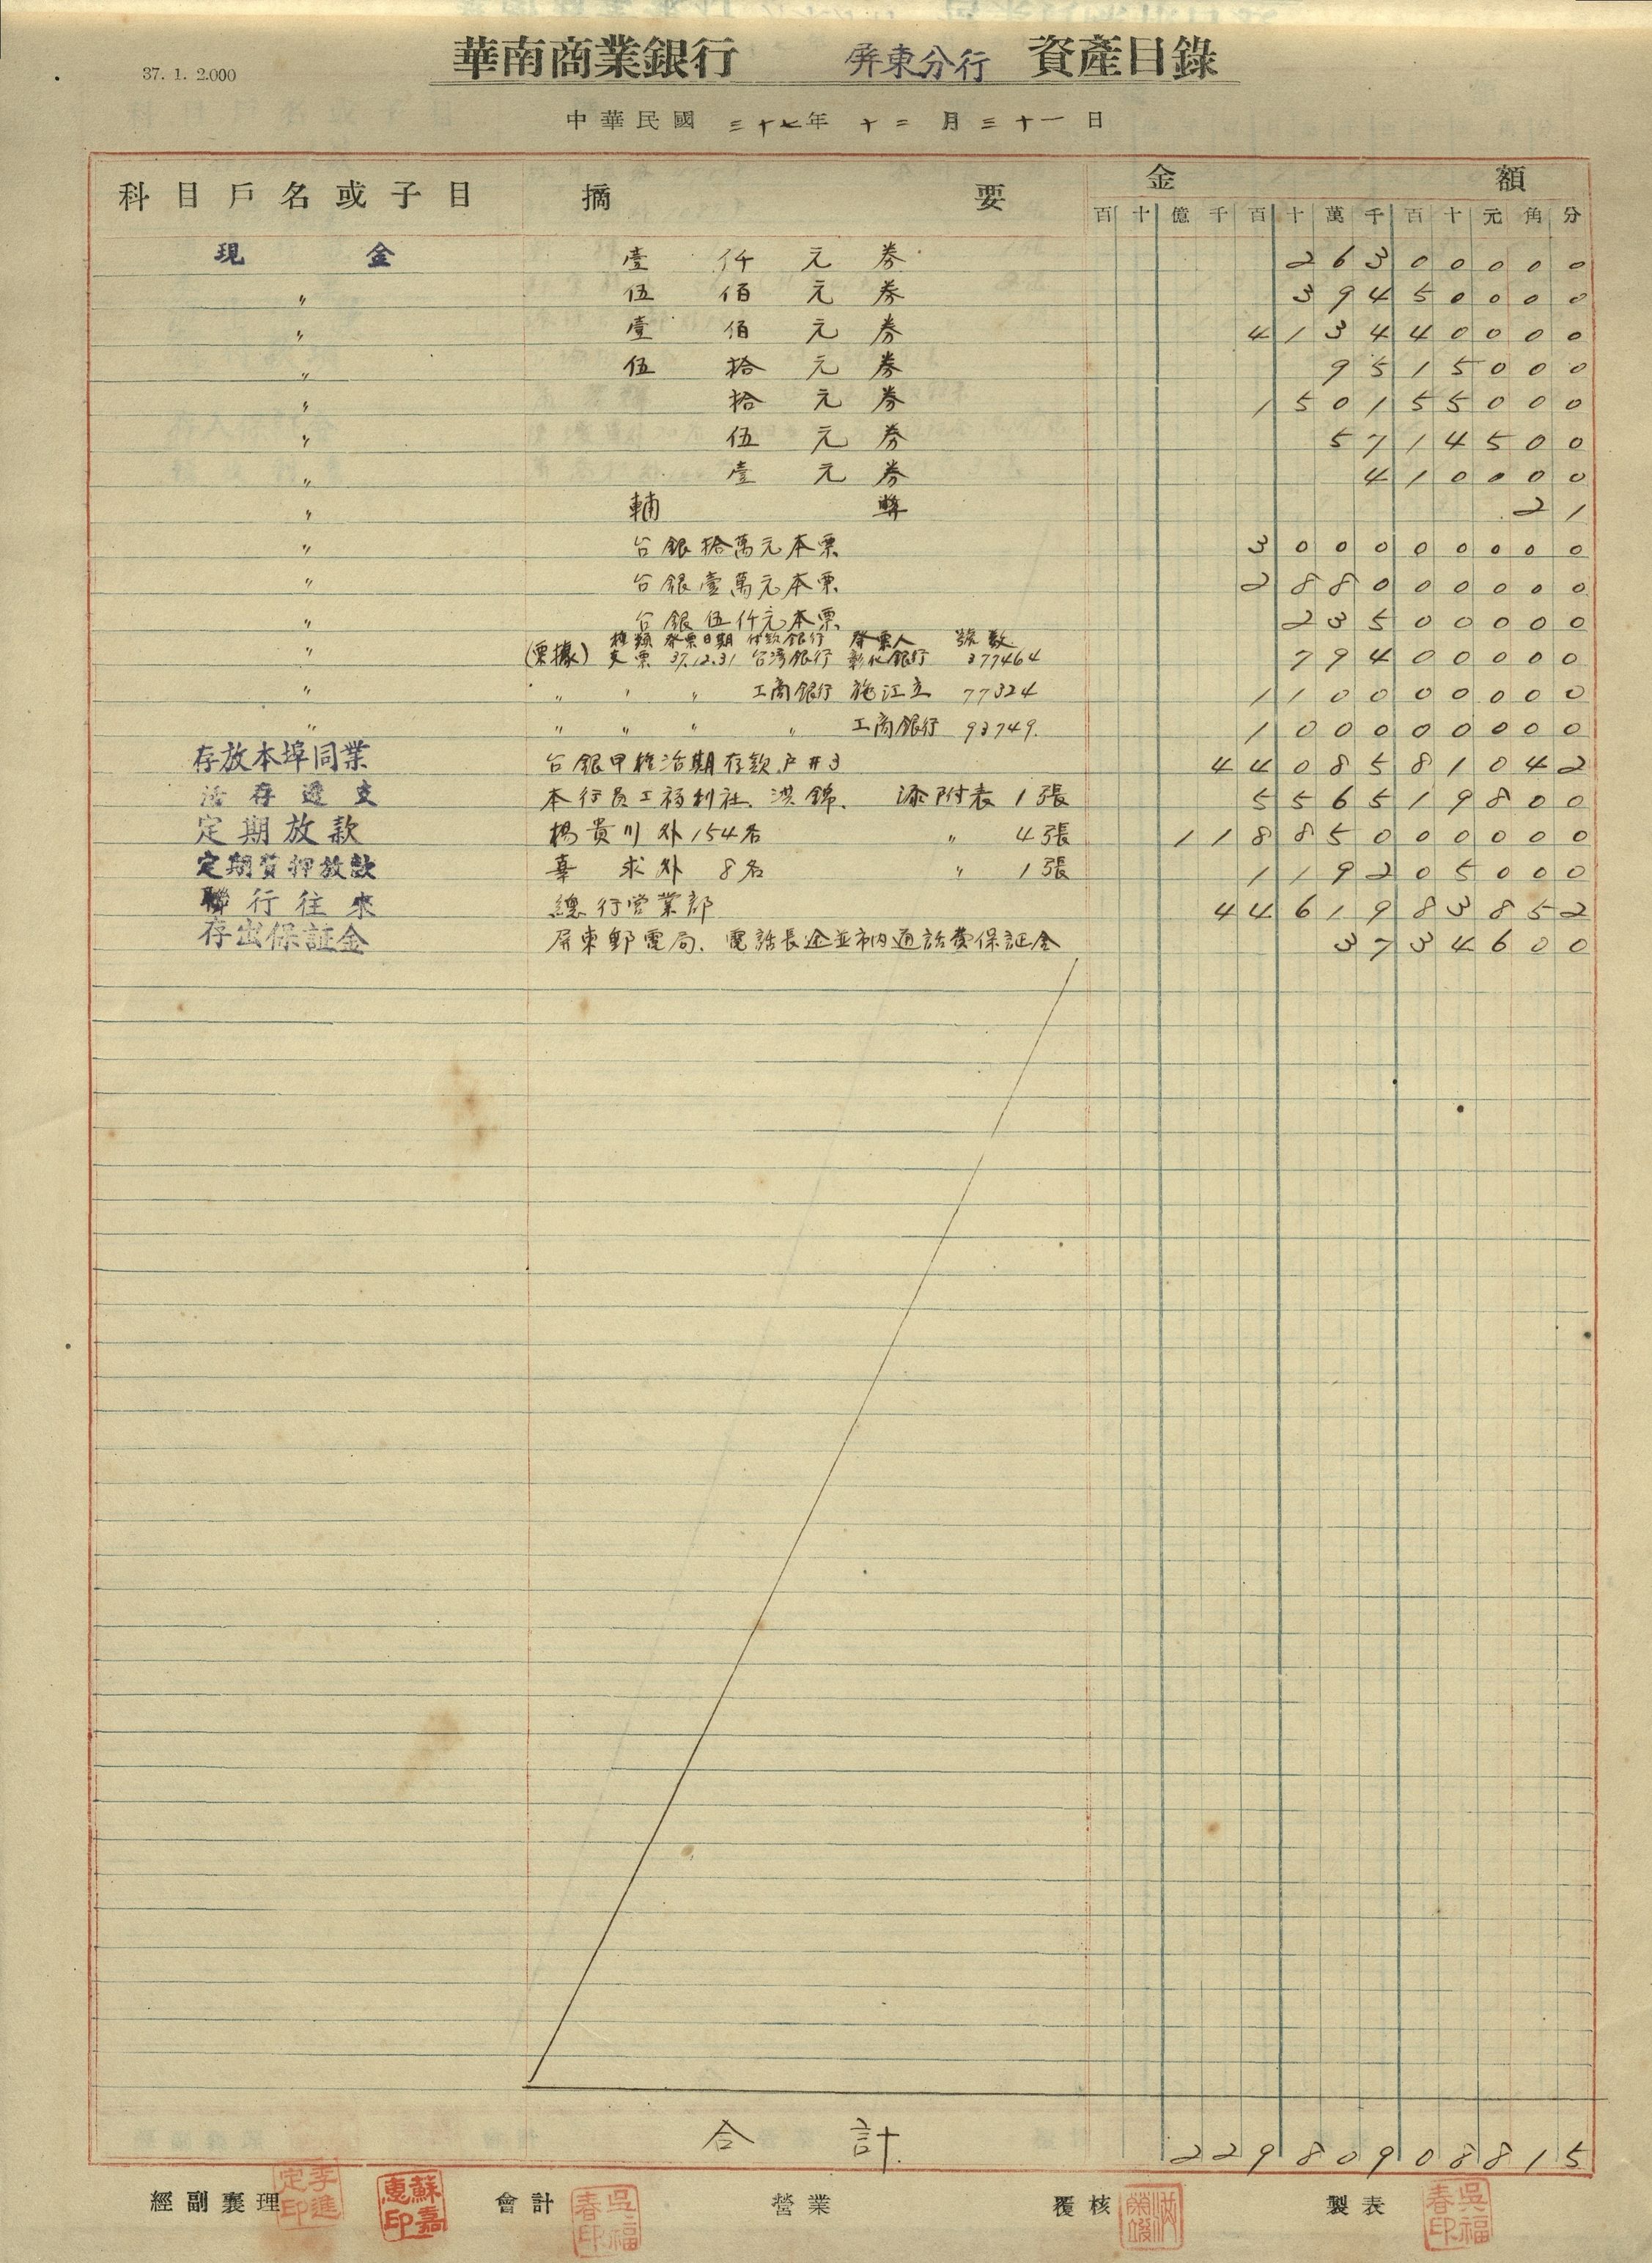 37. 1. 2.000
華南商業銀行 屏東分行 資產目錄
中華民國 三十七年 十二 月 三十一 日
科目戶名或子目 摘 要 金 額
百 十 億 千 百 十 萬 千 百 十 元 角 分
現 金 壹 仟 元 券 2 6 3 0 0 0 0 0
〃 伍 佰 元 券 3 9 4 5 0 0 0 0
〃 壹 佰 元 券 4 1 3 4 4 0 0 0 0
〃 伍 拾 元 券 9 5 1 5 0 0 0
〃 拾 元 券 1 5 0 1 5 5 0 0 0
〃 伍 元 券 5 7 1 4 5 0 0
〃 壹 元 券 4 1 0 0 0 0
〃 輔 幣 2 1
〃 台銀拾萬元本票 3 0 0 0 0 0 0 0 0
〃 台銀壹萬元本票 2 8 8 0 0 0 0 0 0
〃 台銀伍仟元本票 2 3 5 0 0 0 0 0
種類 發票日期 付款銀行 發票人 號數
〃 (票據) 支票 37.12.31 台湾銀行 彰化銀行 377464 7 9 4 0 0 0 0 0
〃 〃 〃 〃 工商銀行 施江立 77324 1 1 0 0 0 0 0 0 0
〃 〃 〃 〃 〃 工商銀行 93749. 1 0 0 0 0 0 0 0 0
存放本埠同業 台銀甲種活期存款戶#3 4 4 0 8 5 8 1 0 4 2
活存透支 本行員工福利社、洪錦、 添附表 1張 5 5 6 5 1 9 8 0 0
定期放款 楊貴川外154名 〃 4張 1 1 8 8 5 0 0 0 0 0 0
定期質押放款 辜 求外 8名 〃 1張 1 1 9 2 0 5 0 0 0
聯行往來 總行營業部 4 4 6 1 9 8 3 8 5 2
存出保証金 屏東郵電局、電話長途並市内通話費保証金 3 7 3 4 6 0 0
合 計 2 2 9 8 0 9 0 8 8 1 5
經副襄理 李進定印 蘇嘉惠印 會計 吳福春印 營業 覆核 製表 吳福春印